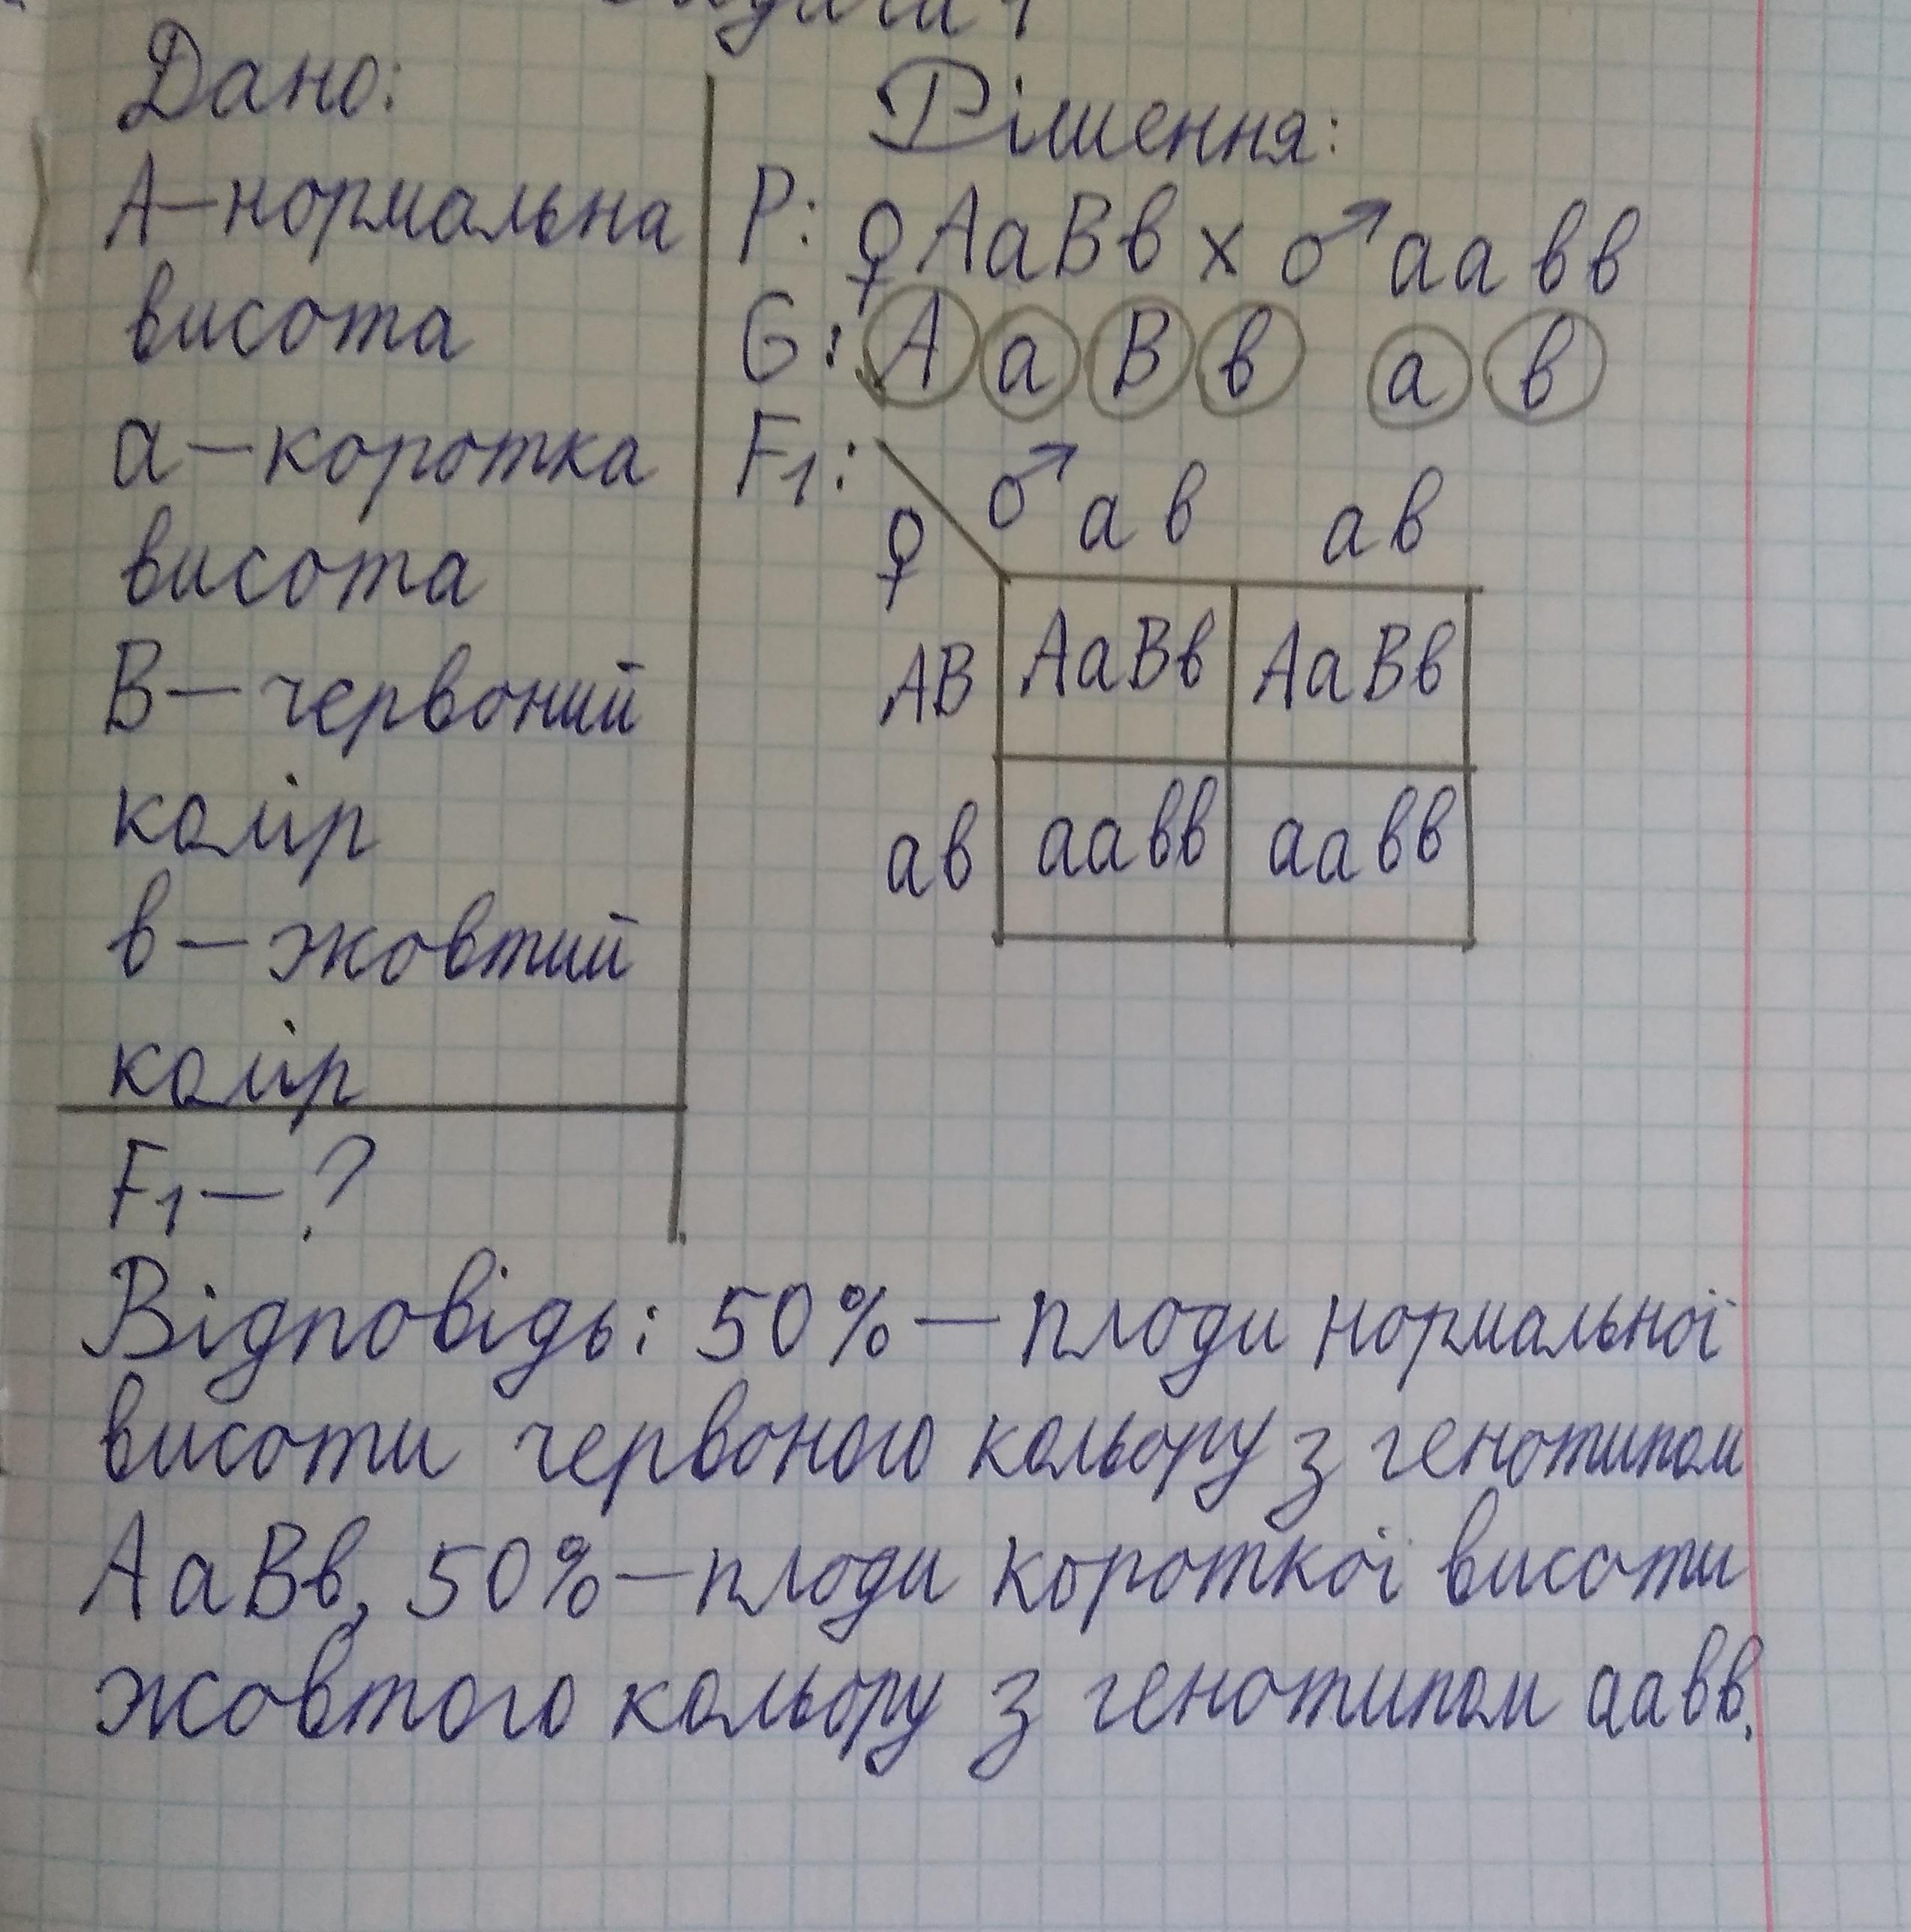 Задача 1
Дано:
А – нормальна
висота
а – коротка
висота
В – червоний
колір
в – жовтий
колір
F1 – ?
Рішення:
Р: ♀ АаВв х ♂ аа вв
G: А а В в а в
F1: ♂ ав ав
♀
АВ АаВв АаВв
ав аавв аавв
Відповідь: 50% – плоди нормальної
висоти червоного кольору з генотипом
АаВв, 50% – плоди короткої висоти
жовтого кольору з генотипом аавв.